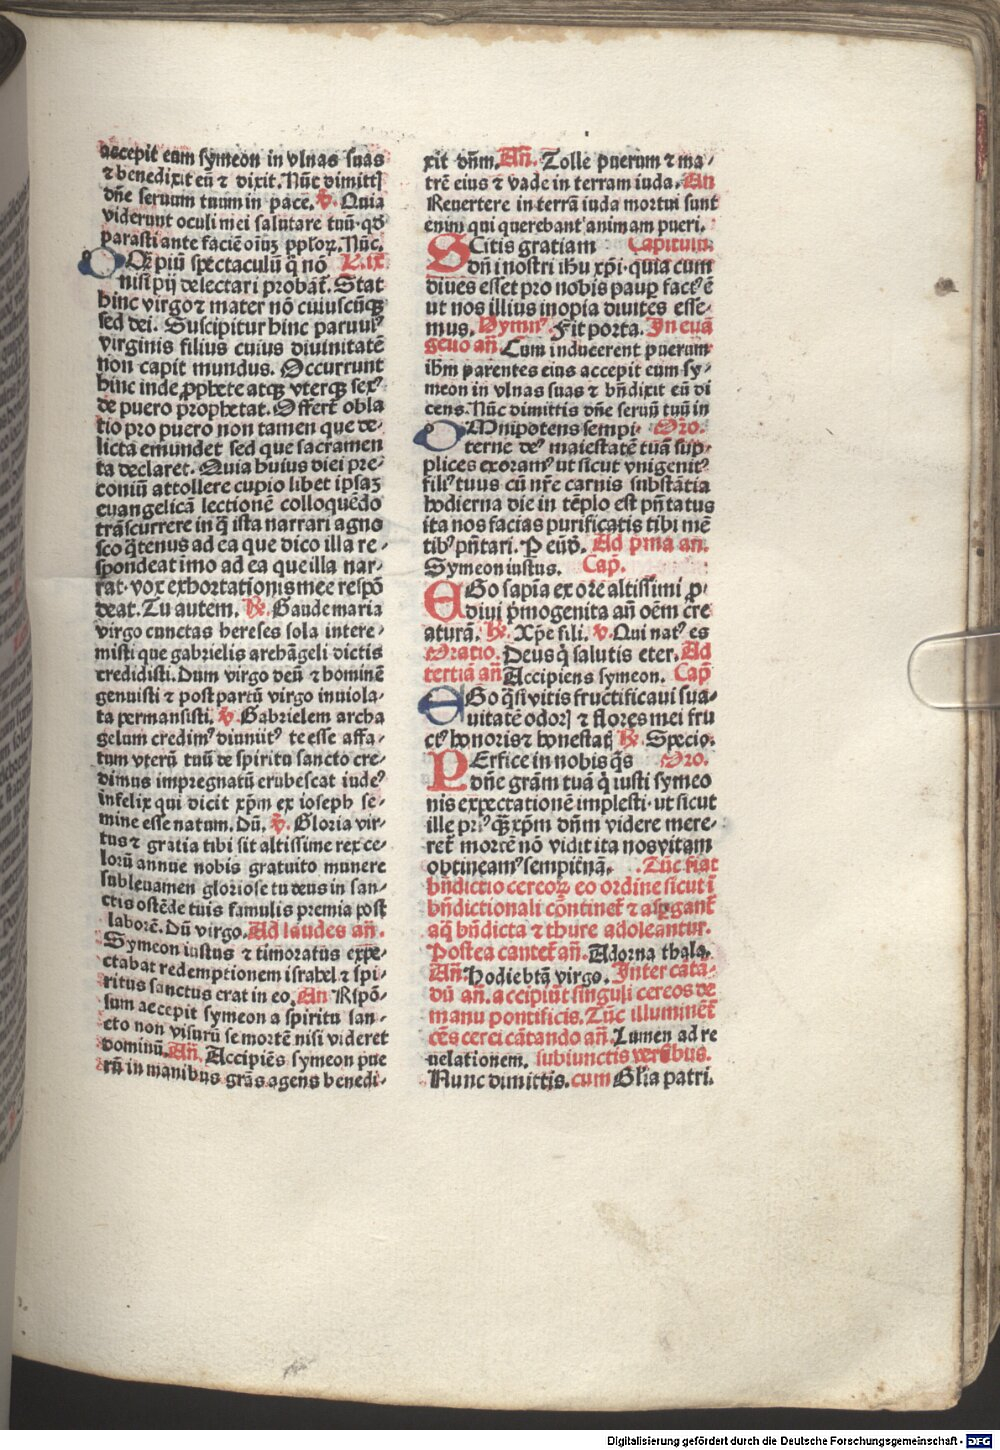 accepit eum symeon in vlnas suas
⁊ benedixit eū ⁊ dixit. Nūc dimittꝭ
dn̄e seruum tuum in pace. v̄. Quia
viderunt oculi mei salutare tuū· qd̄
parasti ante faciē oīuꝫ pploꝝ. Nūc.
O Qͣ piū spectaculū q̄ nō R. ix
nisi pij delectari probāt̄. Stat
hinc virgo ⁊ mater nō cuiuscūqꝫ
sed dei. Suscipitur hinc paruulꝰ
virginis filius cuius diuinitatē
non capit mundus. Occurrunt
hinc inde ꝓphete atqꝫ vterqꝫ sexꝰ
de puero prophetat. Offert̄ obla
tio pro puero non tamen que de⸗
licta emundet sed que sacramen
ta declaret. Quia huius diei pre⸗
coniū attollere cupio libet ipsaꝫ
euangelicā lectionē colloquēdo
trāscurrere in q̄ ista narrari agno
sco q̄tenus ad ea que dico illa re⸗
spondeat imo ad ea que illa nar⸗
rat· vox exhortationis mee respō
deat. Tu autem. R̄. Gaude maria
virgo cunctas hereses sola intere⸗
misti que gabrielis archāgeli dictis
credidisti. Dum virgo deū ⁊ hominē
genuisti ⁊ post partū virgo inuiola⸗
ta permansisti. v̄. Gabrielem archa
gelum credimꝰ diuinitꝰ te esse affa⸗
tum vterū tuū de spiritu sancto cre⸗
dimus impregnatū erubescat iudeꝰ
infelix qui dicit xp̄m ex ioseph se⸗
mine esse natum. Dū. v̄. Gloria vir⸗
tus ⁊ gratia tibi sit altissime rex ce⸗
lorū annue nobis gratuito munere
subleuamen gloriose tu deus in san⸗
ctis ostēde tuis famulis premia post
laborē. Dū virgo. Ad laudes an̄.
Symeon iustus ⁊ timoratus expe⸗
ctabat redemptionem israhel ⁊ spi⸗
ritus sanctus erat in eo. An Rspō⸗
sum accepit symeon a spiritu san⸗
cto non visurū se mortē nisi videret
dominū. An̄. Accipiēs symeon pue
rū in manibus grās agens benedi⸗
xit dn̄m. An̄. Tolle puerum ⁊ ma⸗
trē eius ⁊ vade in terram iuda. An
Reuertere in terrā iuda mortui sunt
enim qui querebant animam pueri.
SCitis gratiam Capitulum.
dn̄i nostri ihū xp̄i· quia cum
diues esset pro nobis paup̄ factꝰ ē
ut nos illius inopia diuites esse⸗
mus. Hymnꝰ. Fit porta. In euā
gelio an̄ Cum inducerent puerum
ihm parentes eius accepit eum sy⸗
meon in vlnas suas ⁊ bn̄dixit eū di
cens. Nūc dimittis dn̄e seruū tuū in
OMnipotens sempi⸗ Oro.
terne deꝰ maiestatē tuā sup⸗
plices exoramꝰ ut sicut vnigenitꝰ
filiꝰ tuus cū nr̄e carnis substātia
hodierna die in tēplo est pn̄tatus
ita nos facias purificatis tibi mē
tibꝰ pn̄tari. P eūd̄. Ad pma an̄.
Symeon iustus. Cap̄.
EGo sapīa ex ore altissimi ꝓ⸗
diui pͥmogenita an̄ oēm cre
aturā. R̄. Xp̄e fili. v. Qui natꝰ es
Oratio. Deus q̄ salutis eter. Ad
tertiā an̄ Accipiens symeon. Cap̄
EGo q̄si vitis fructificaui sua⸗
uitatē odorꝭ ⁊ flores mei fru
ctꝰ honoris ⁊ honestatꝭ R̄. Specio.
PErfice in nobis q̄s Oro.
dn̄e grām tuā q̄ iusti symeo
nis expectationē implesti· ut sicut
ille priꝰ qꝫ xp̄m dn̄m videre mere⸗
ret̄ mortē nō vidit ita nos vitam
obtineamꝰ sempit̄nā. Tūc fiat
bn̄dictio cereoꝝ eo ordine sicut ī
bn̄dictionali cōntinet̄ ⁊ aspgant̄
aq̄ bn̄dicta ⁊ thure adoleantur.
Postea cantet̄ an̄. Adorna thala.
An̄. Hodie btā virgo. Inter cātā⸗
dū an̄. accipiūt singuli cereos de
manu pontificis. Tūc illuminēt̄
cēs cerei cātando an̄. Lumen ad re
uelationem. subiunctis versibus.
Nunc dimittis. cum Gl̄ia patri.
Digitalisierung gefördert durch die Deutsche Forschungsgemeinschaft - DFG